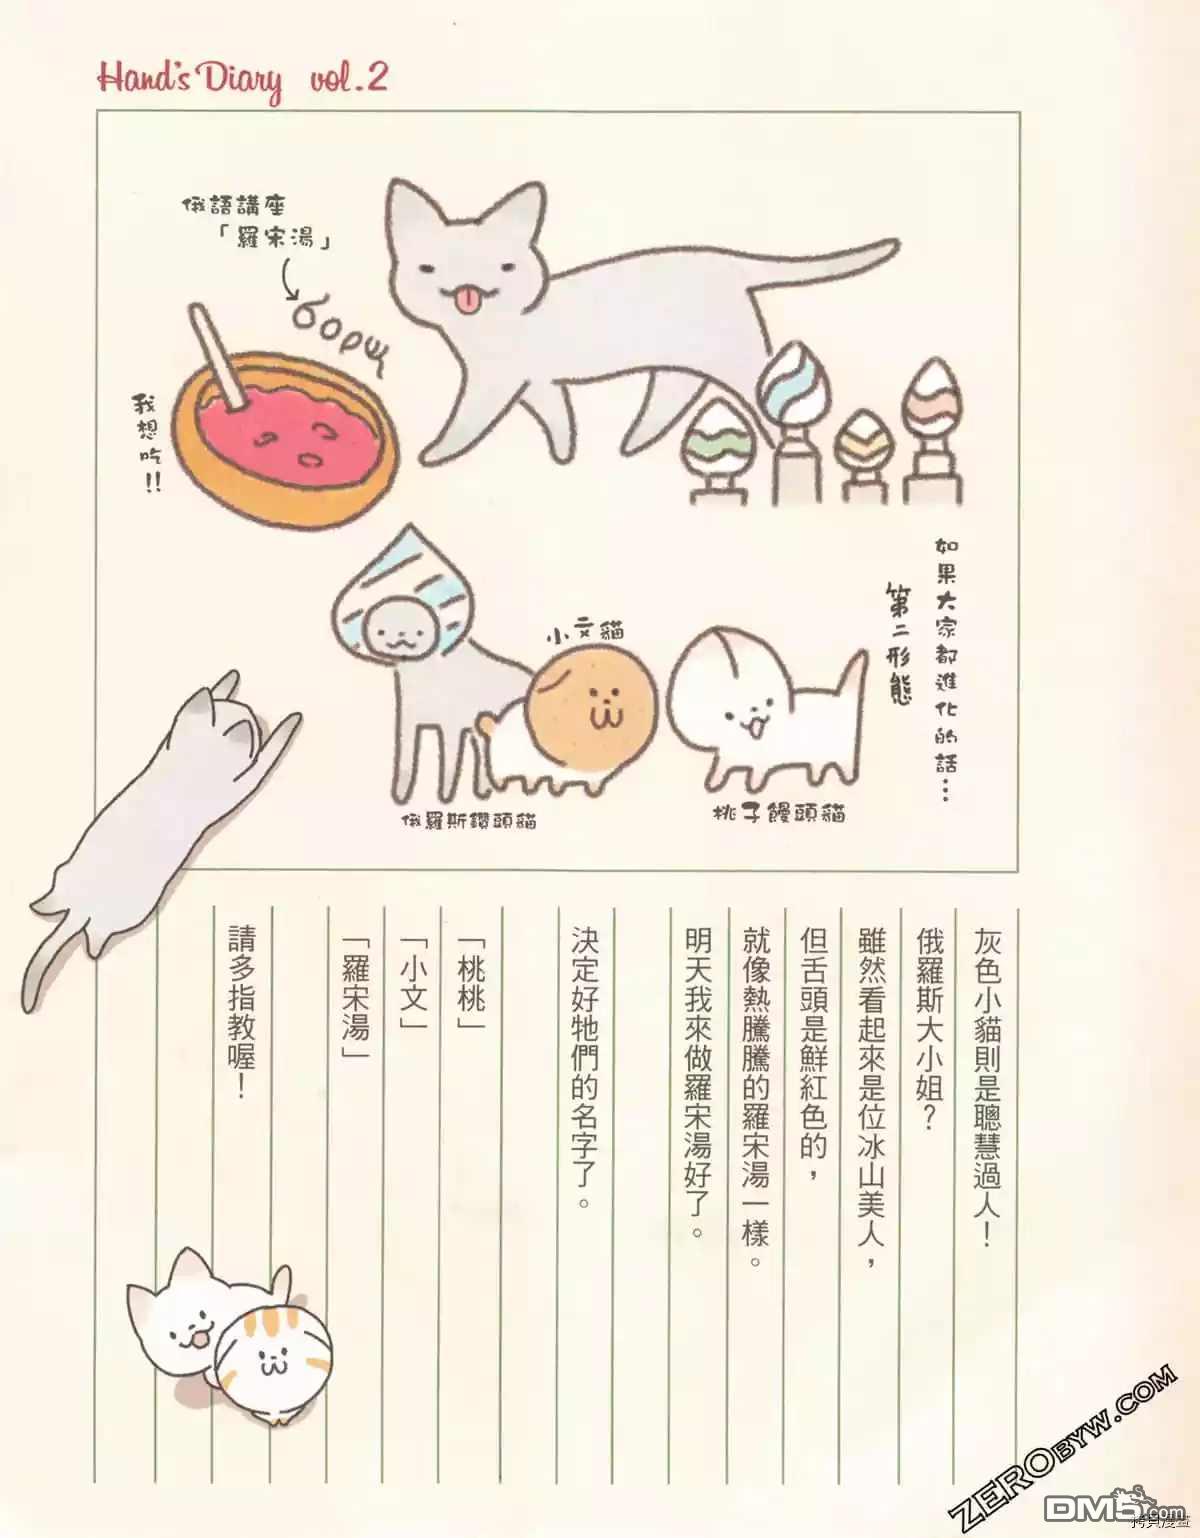 Hand's Diary vol.2
俄語講座
「羅宋湯」
борщ
我想吃!!
如果大家都進化的話…
第二形態
小文貓
俄羅斯鑽頭貓
桃子饅頭貓
灰色小貓則是聰慧過人！
俄羅斯大小姐？
雖然看起來是位冰山美人，
但舌頭是鮮紅色的，
就像熱騰騰的羅宋湯一樣。
明天我來做羅宋湯好了。
決定好牠們的名字了。
「桃桃」
「小文」
「羅宋湯」
請多指教喔！
ZEROBYW.COM
DM5.com
拷貝漫畫